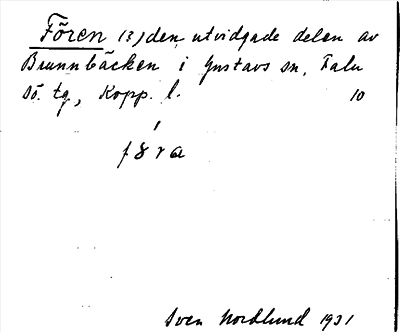 Fören (3) den utvidgade delen av
Brunnbäcken i Gustavs sn, Falu
sö. tg, Kopp. l. 10
Sven Nordlund 1931